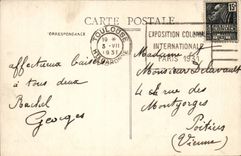 CARTE POSTALE
CORRESPONDANCE
TOULOUSE
19
3 - VII
1931
EXPOSITION COLONIALE
INTERNATIONALE
PARIS 1931
15
affectueux baisers
à tous deux
Rachel
Georges
Madame et
Monsieur Delavault
4 rue des
Montgorges
Poitiers
(Vienne)